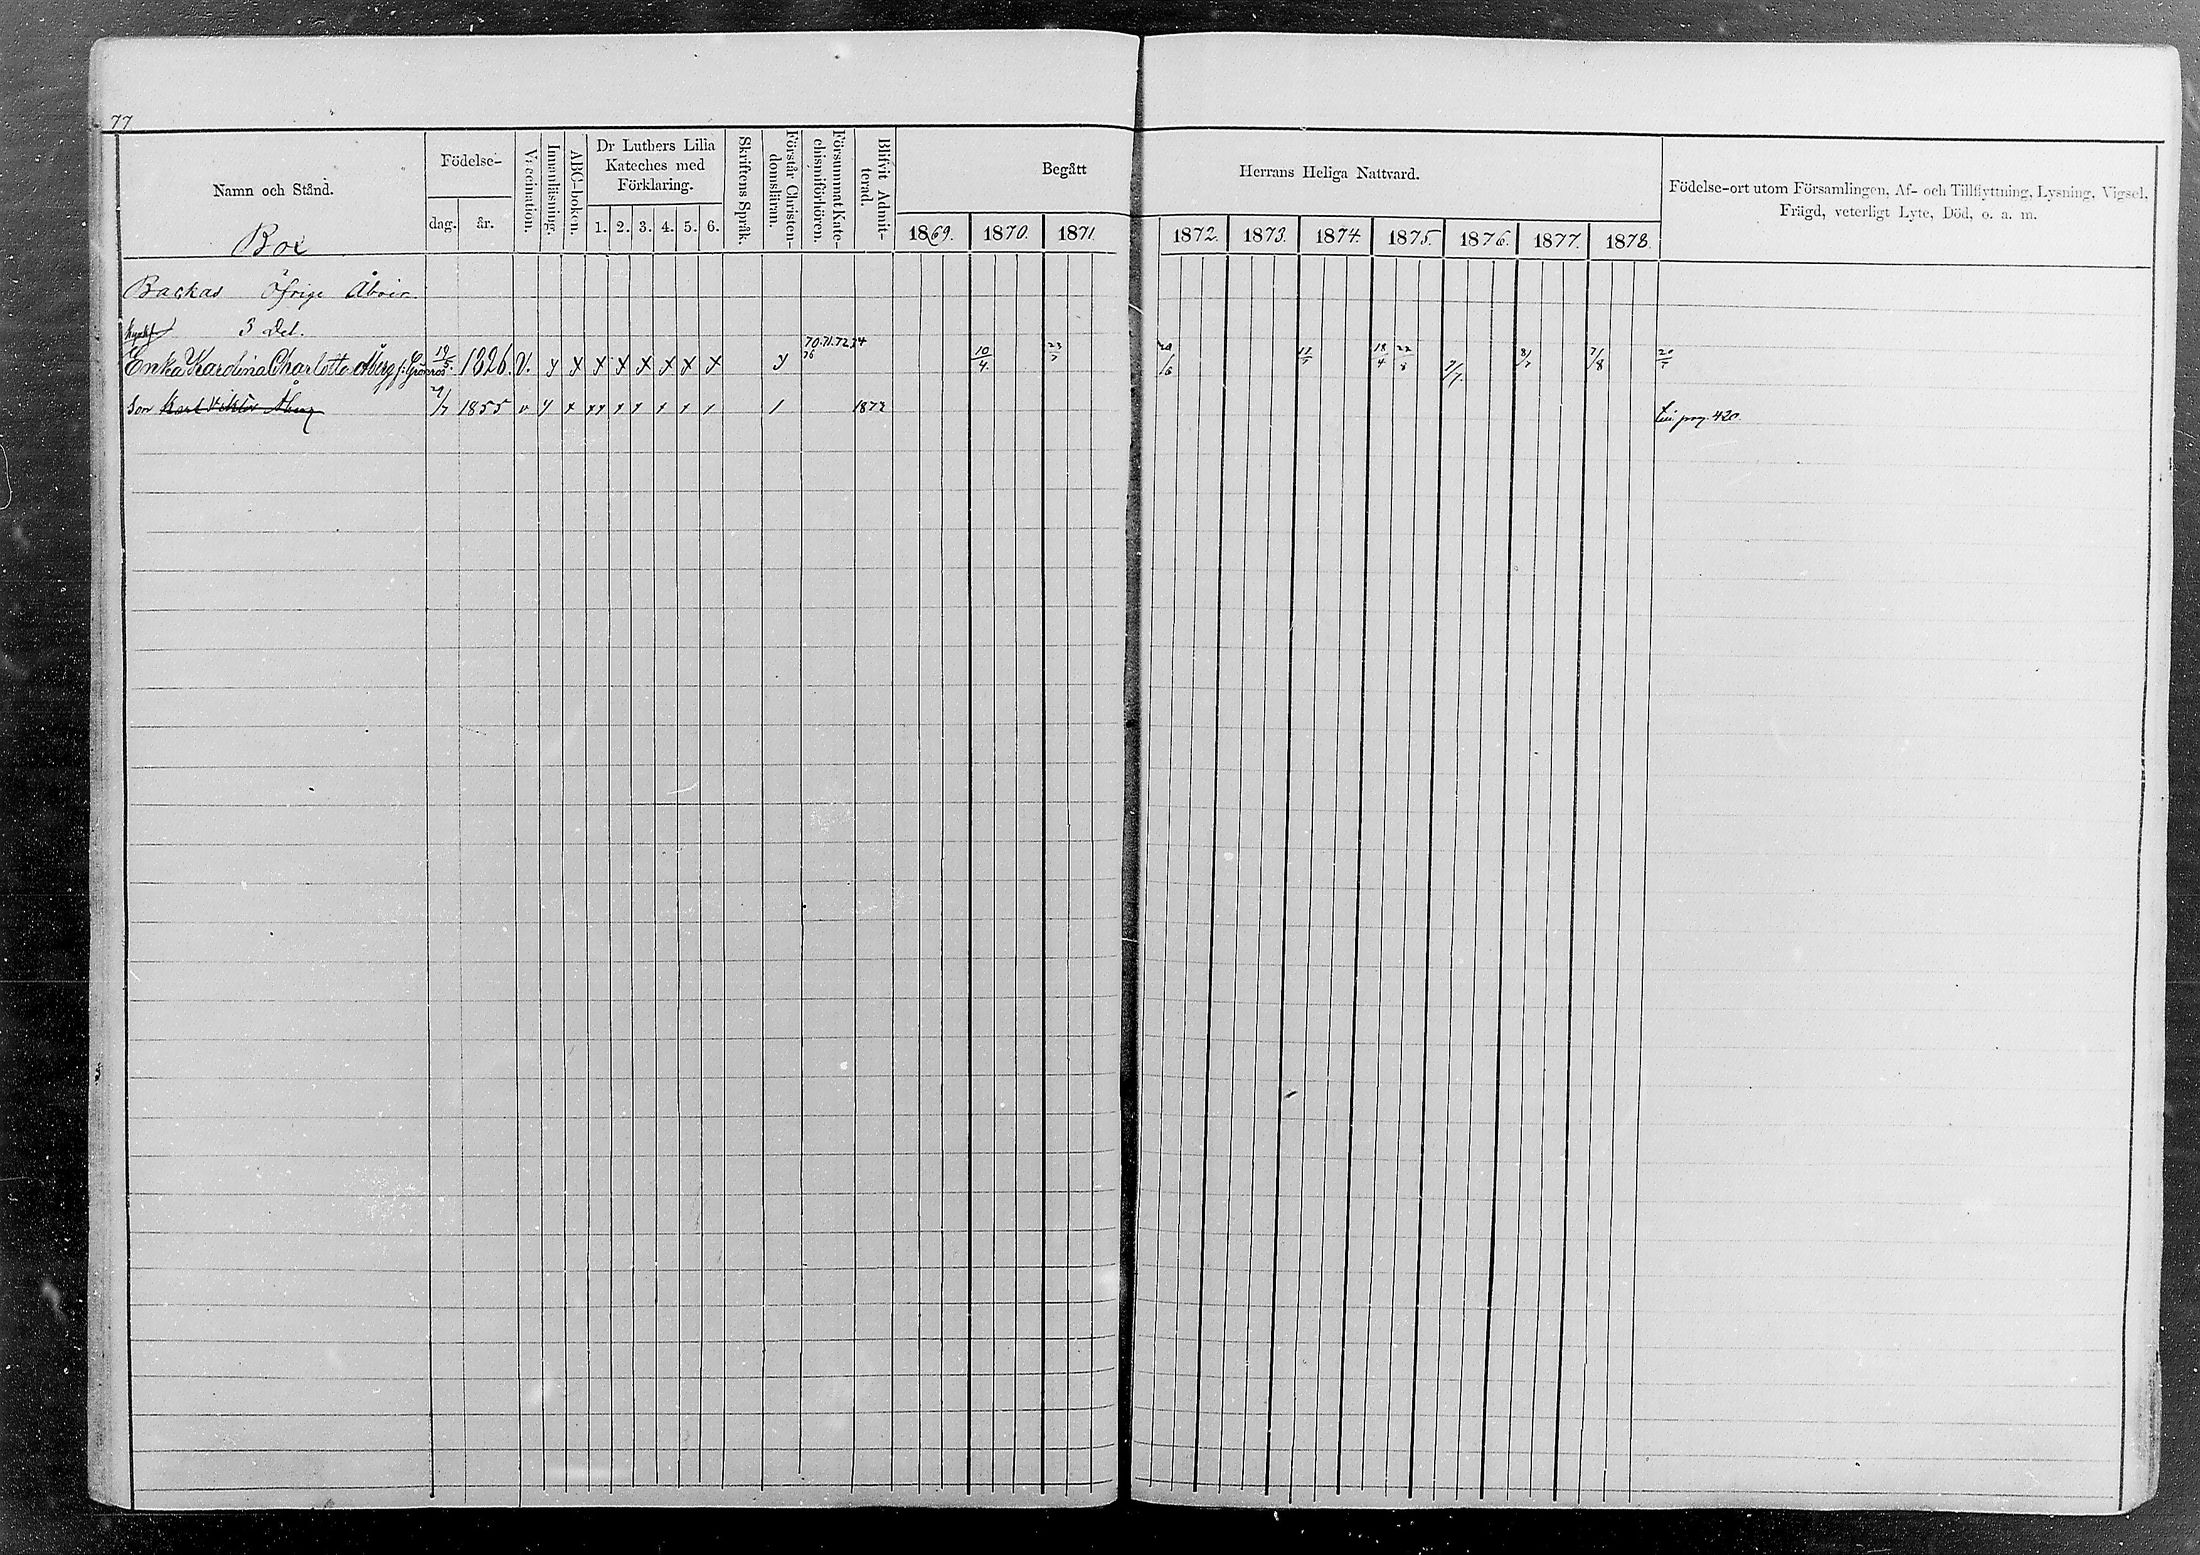 77
Namn och Stånd.
Födelse-
dag.
år.
Vaccination.
Innanläsning.
ABC-boken.
Dr Luthers Lilla
Kateches med
Förklaring.
1. 2. 3. 4. 5. 6.
Skriftens Språk.
Förstår Christen-
domsläran.
Försummat Kate-
chismiförhören.
Blifvit Admit-
terad.
Begått
Herrans Heliga Nattvard.
1869. 1870. 1871. 1872. 1873. 1874. 1875. 1876. 1877. 1878.
Födelse-ort utom Församlingen, Af- och Tillflyttning, Lysning, Vigsel,
Frägd, veterligt Lyte, Död, o. a. m.
Box
Backas Öfrige Åboer.
3 Del.
70.71.72.74
76
Enka Karolina Charlotta Åberg f. Grönroos 19/5 1826. V. y x x x x x x x y 10/4 23/7 20/6 11/7 18/4 22/8 9/7. 8/7 7/8 20/7
Son Karl Viktor Åberg 2/7 1855 v y x x x x x x x / / 1872 Lin. pag. 420.